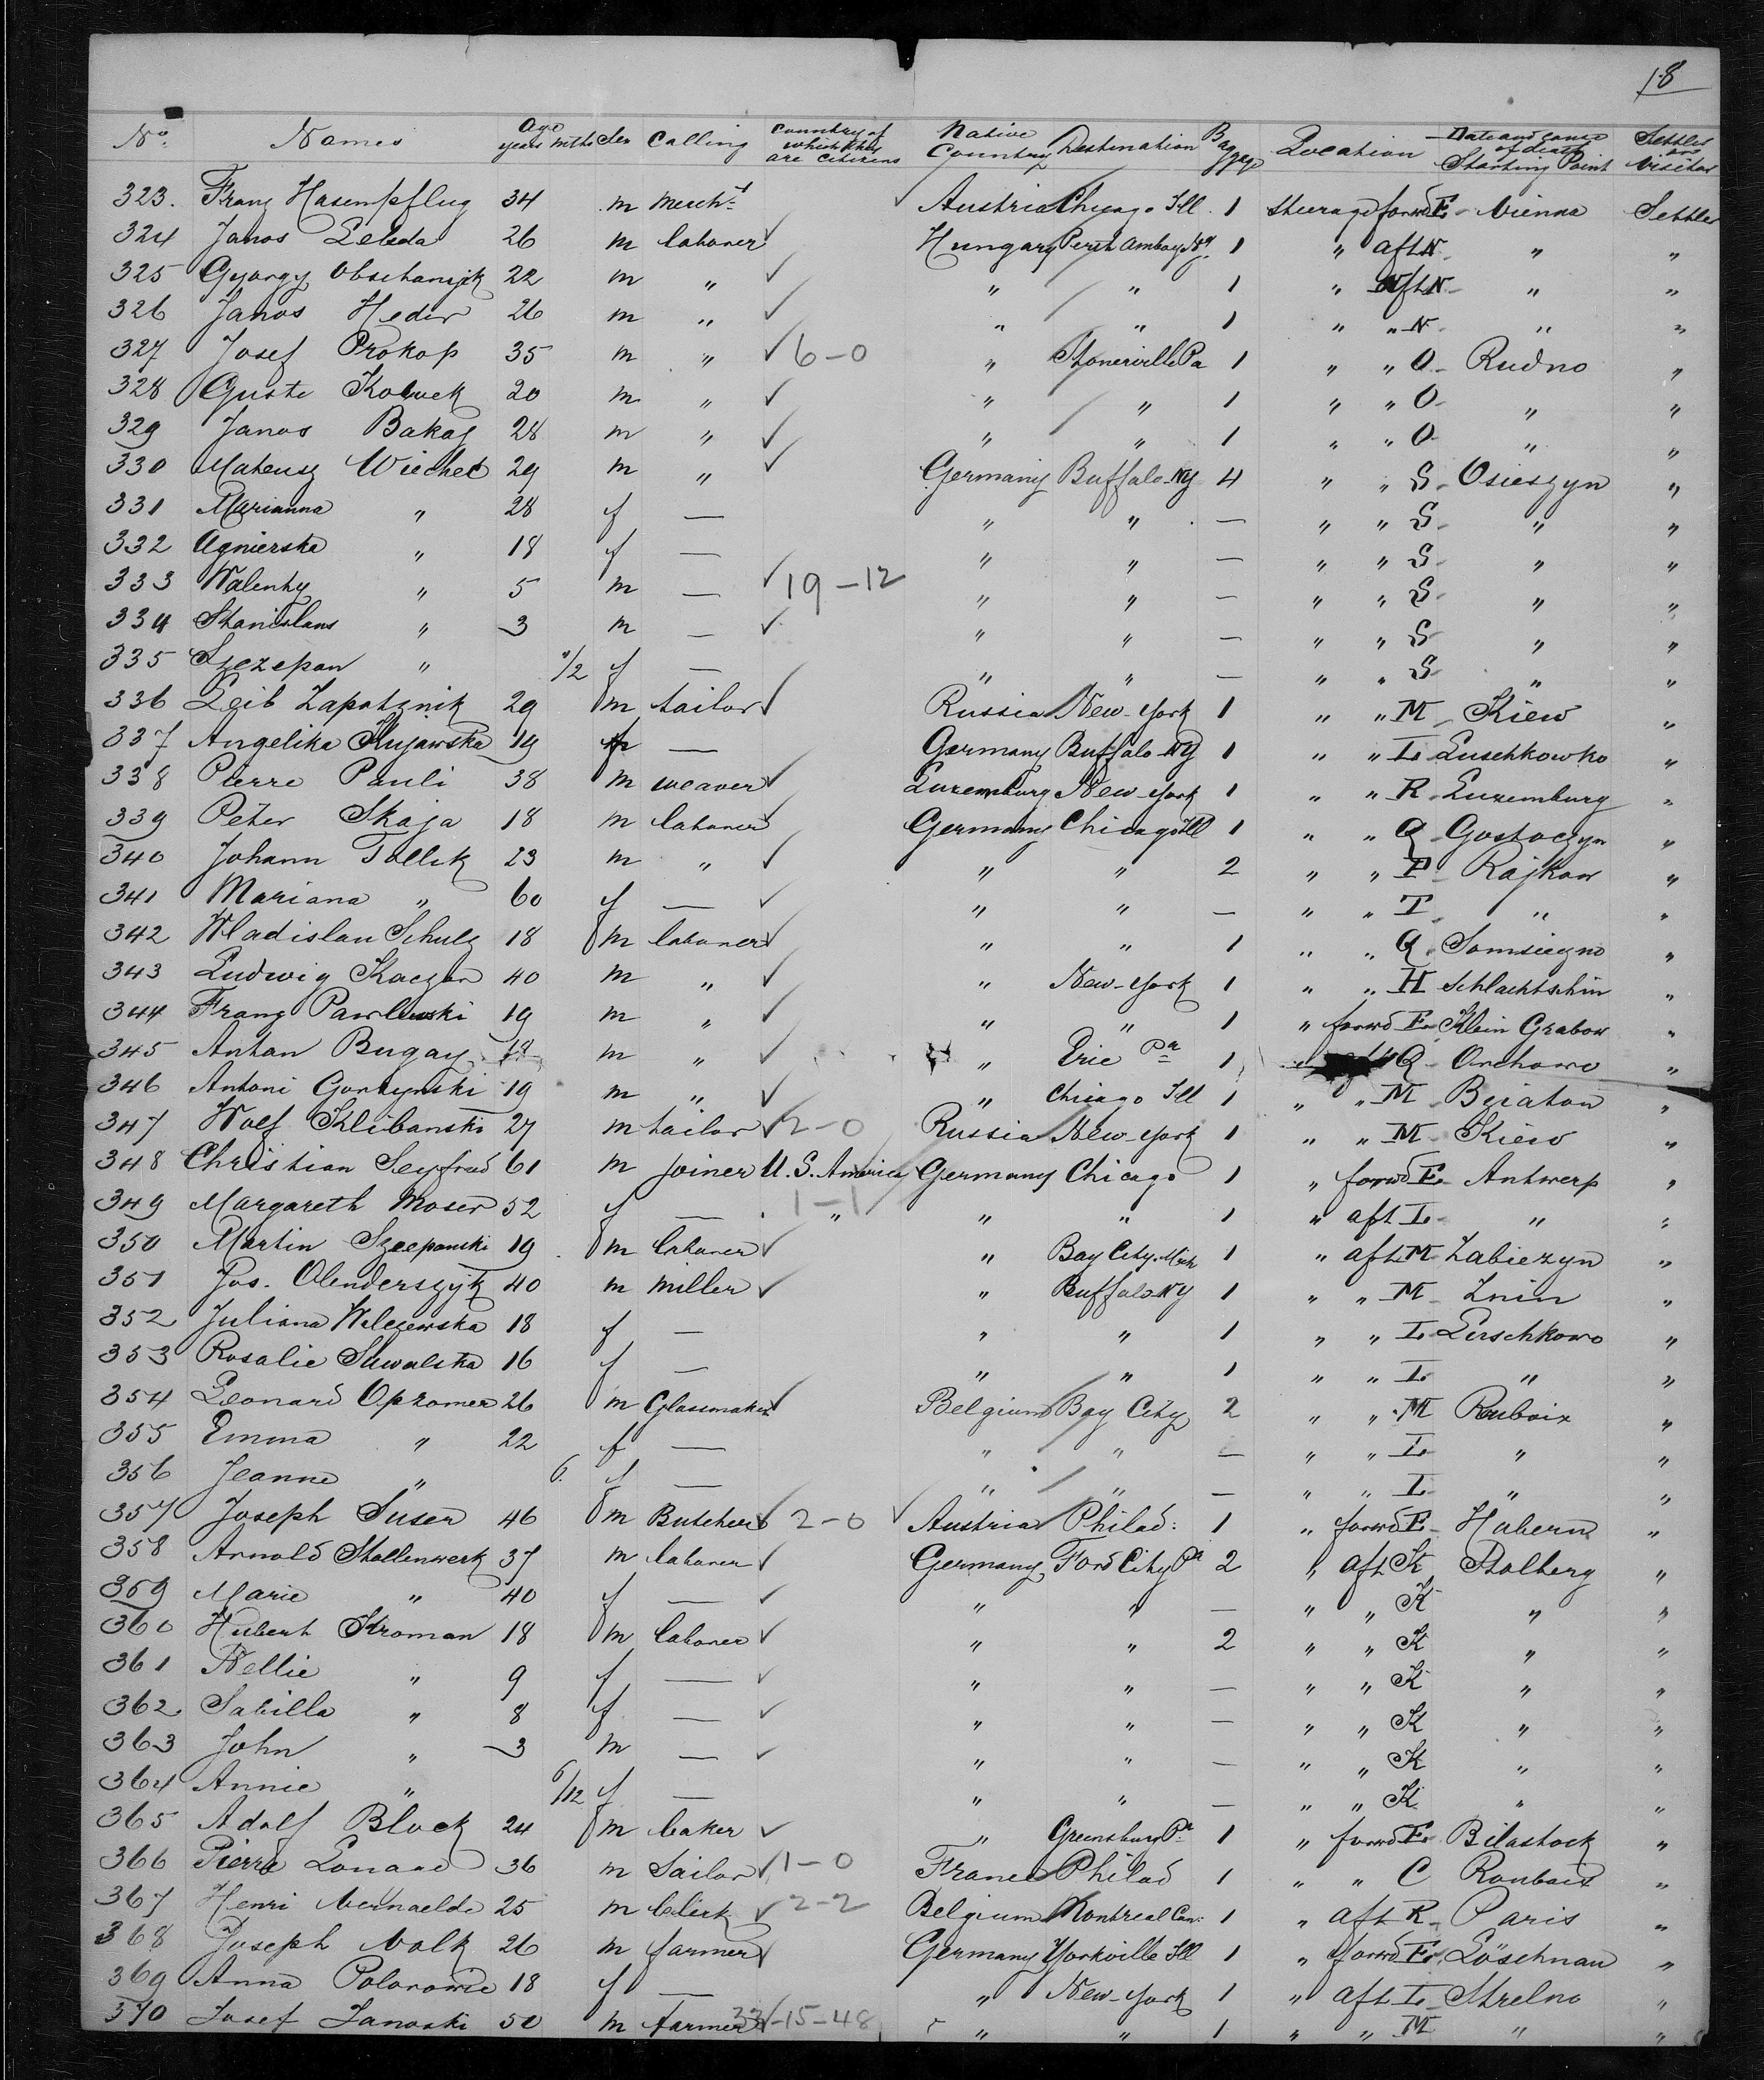 18
No. Names Age years mths Sex Calling Country of which they are Citizens Native Country Destination Baggage Location Date and cause of death Starting Point Settler or Visitor
323. Franz Hasempflug 34 m merch't Austria Chicago Ill. 1 Steerage forwd E Vienna Settler
324 Janos Lebeda 26 m laborer ✓ Hungary Perth Amboy NY. 1 " aft N. " "
325 Gyorgy Obschansjk 22 m " ✓ " " 1 " aft N " "
326 Janos Heder 26 m " ✓ " " 1 " " N " "
327 Josef Prokop 35 m " ✓ 6-0 " Stonerville Pa 1 " " O Rudno "
328 Guste 20 m " ✓ " " 1 " " O " "
329 Janos Bakaj 28 m " ✓ " " 1 " " O " "
330 Mateusz Wiechec 29 m " ✓ Germany Buffalo NY 4 " " S Osieszyn "
331 Marianna " 28 f — " " — " " S " "
332 Agnierska " 18 f — " " — " " S " "
333 Walenty " 5 m — ✓ 19-12 " " — " " S " "
334 Stanislaus " 3 m — ✓ " " — " " S " "
335 Szczepan " /2 f — " " — " " S " "
336 Leib Zapotznik 29 m tailor ✓ Russia New-York 1 " " M Kiew "
337 Angelika Kujawska 19 f — Germany Buffalo NY 1 " " L Luschkowko "
338 Pierre Pauli 38 m weaver ✓ Luxemburg New-York 1 " " R Luxemburg "
339 Peter Skaja 18 m laborer ✓ Germany Chicago Ill 1 " " Q Gostoczyn "
340 Johann Tollik 23 m " ✓ " " 2 " " P Rajkow "
341 Mariana " 60 f — ✓ " " — " " T " "
342 Wladislau Schulz 18 m laborer ✓ " " 1 " " Q Somsiezno "
343 Ludwig Kaczor 40 m " ✓ " New-York 1 " " H Schlachtschin "
344 Franz Pawlewski 19 m " ✓ " " 1 " forwd E Klein Grabow "
345 Anton Bugay 18 m " ✓ " Erie Pa 1 Q Orchowo "
346 Antoni Gortynski 19 m " ✓ " Chicago Ill 1 " " M "
347 Wolf Klibanski 27 m tailor ✓ 2-0 Russia New-York 1 " " M Kiew "
348 Christian Seyfried 61 m Joiner U.S. America Germany Chicago 1 " forwd E Antwerp "
349 Margareth Moser 52 f — 1-1 " " " 1 " aft L " "
350 Martin Szcepanski 19 m laborer ✓ " Bay City Mich 1 " aft M Labiczyn "
351 Jos. Olenderszyk 40 m Miller ✓ " Buffalo NY 1 " " M Znin "
352 Juliana Welczewska 18 f — " " 1 " " L Luschkowo "
353 Rosalie Suwalska 16 f — " " 1 " " L " "
354 Leonard Opzomer 26 m Glassmaker ✓ Belgium Bay City 2 " " M Roubaix "
355 Emma " 22 f — " " — " " L " "
356 Jeanne " 6. f — " " — " " L " "
357 Joseph Suser 46 m Butcher ✓ 2-0 ✓ Austria Philad: 1 " forwd E Habern "
358 Arnold Stollenwerk 37 m laborer ✓ Germany Ford City Pa 2 " aft K Stolberg "
359 Marie " 40 f — ✓ " " — " " K " "
360 Hubert Kroman 18 m laborer ✓ " " 2 " " K " "
361 Nellie " 9 f — ✓ " " — " " K " "
362 Sabilla " 8 f — ✓ " " — " " K " "
363 John " 3 m — ✓ " " — " " K " "
364 Annie " 6/12 f — " " — " " K " "
365 Adolf Block 24 m baker ✓ " Greensburg Pa 1 " forwd E Bilastock "
366 Pierre 36 m Sailor ✓ 1-0 France Philad 1 " " C Roubaix "
367 Henri Vernaelde 25 m Clerk ✓ 2-2 Belgium Montreal Can. 1 " aft R Paris "
368 Joseph Volk 26 m farmer ✓ Germany Yorkville Ill 1 " forwd E Löschnau "
369 Anna Polorowic 18 f — " New-York 1 " aft L Strelno "
370 Josef Janoski 50 m farmer 33-15-48 " " 1 " " M " "